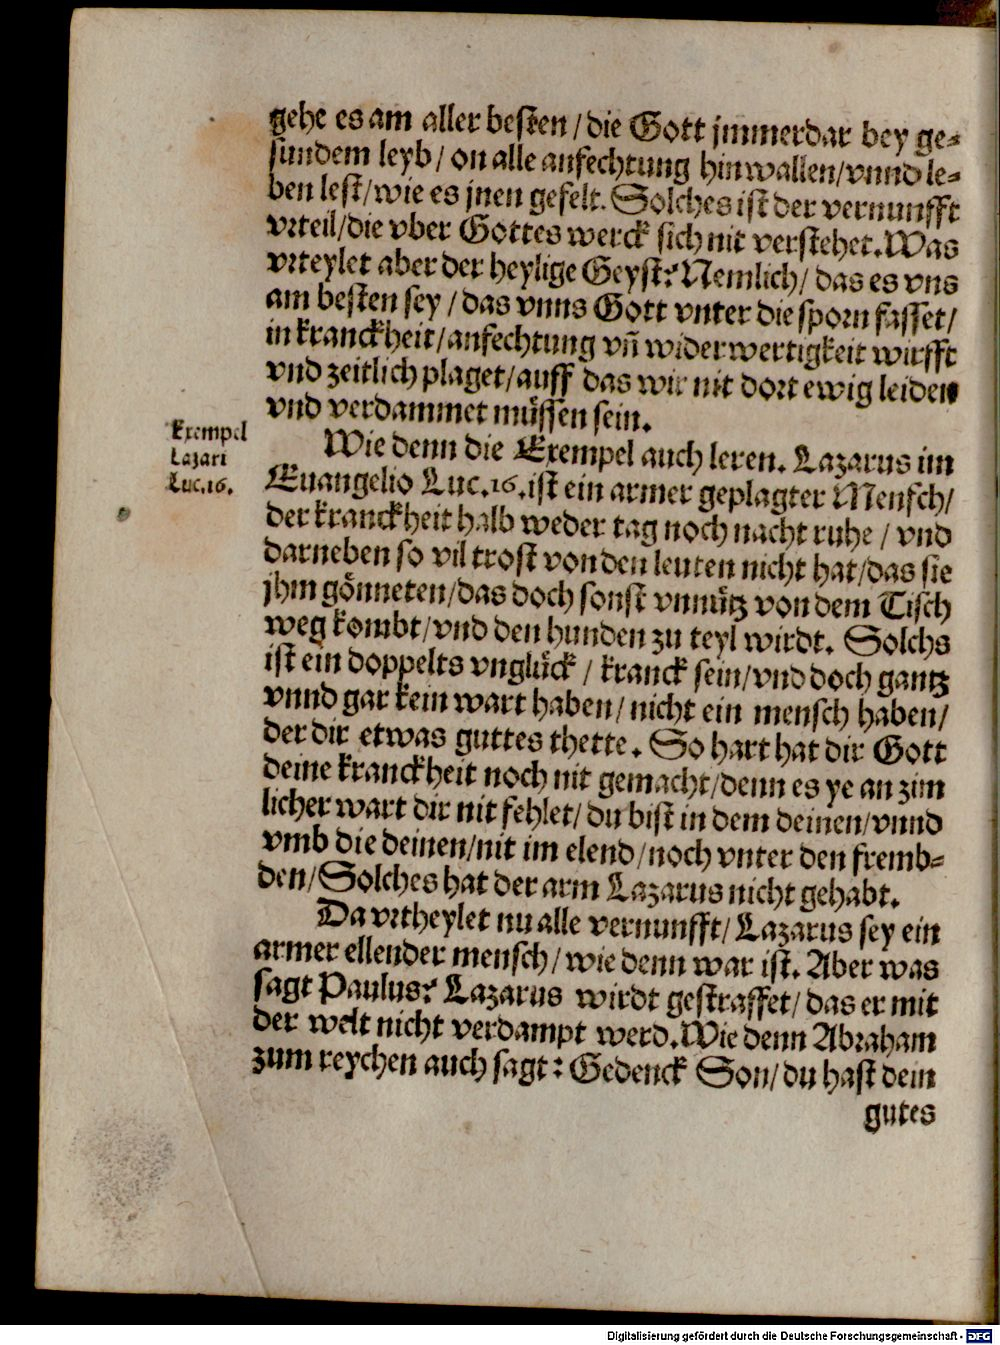 gehe es am aller besten / die Gott jmmerdar bey ge⸗
sundem leyb / on alle anfechtung hinwallen / vnnd le⸗
ben lest / wie es jnen gefelt. Solches ist der vernunfft
vrteil / die vber Gottes werck sich nit verstehet. Was
vrteylet aber der heylige Geyst? Nemlich / das es vns
am besten sey / das vnns Gott vnter die sporn fasset /
in kranckheit / anfechtung vñ widerwertigkeit wirfft
vnd zeitlich plaget / auff das wir nit dort ewig leiden
vnd verdammet müssen sein.
Exempel
Lazari
Luc. 16.
Wie denn die Exempel auch leren. Lazarus im
Euangelio Luc. 16. ist ein armer geplagter Mensch /
der kranckheit halb weder tag noch nacht ruhe / vnd
darneben so vil trost von den leuten nicht hat / das sie
jhm gönneten / das doch sonst vnnütz von dem Tisch
weg kombt / vnd den hunden zu teyl wirdt. Solchs
ist ein doppelts vnglück / kranck sein / vnd doch gantz
vnnd gar kein wart haben / nicht ein mensch haben /
der dir etwas guttes thette. So hart hat dir Gott
deine kranckheit noch nit gemacht / denn es ye an zim
licher wart dir nit fehlet / du bist in dem deinen / vnnd
vmb die deinen / nit im elend / noch vnter den fremb⸗
den / Solches hat der arm Lazarus nicht gehabt.
Da vrtheylet nu alle vernunfft / Lazarus sey ein
armer ellender mensch / wie denn war ist. Aber was
sagt Paulus? Lazarus wirdt gestraffet / das er mit
der welt nicht verdampt werd. Wie denn Abraham
zum reychen auch sagt: Gedenck Son / du hast dein
gutes
Digitalisierung gefördert durch die Deutsche Forschungsgemeinschaft - DFG